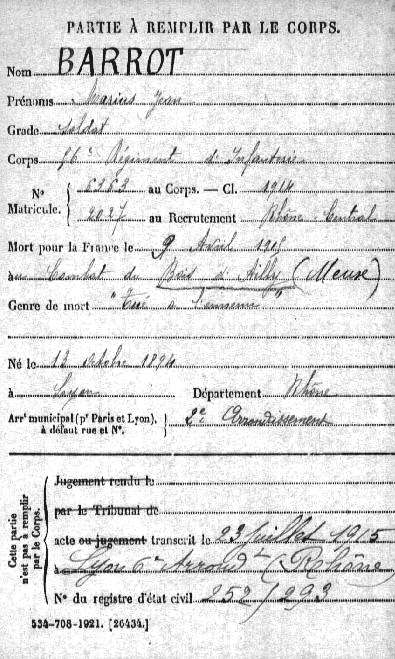 PARTIE À REMPLIR PAR LE CORPS.
Nom BARROT
Prénoms Marius Jean
Grade Soldat
Corps 56e Régiment d'Infanterie
N° Matricule. { 6363 au Corps. — Cl. 1914
2027 au Recrutement Rhône Central
Mort pour la France le 9 Avril 1915
au Combat du Bois d'Ailly (Meuse)
Genre de mort "Tué à l'ennemi"
Né le 12 octobre 1894
à Lyon Département Rhône
Arrt municipal (pr Paris et Lyon), à défaut rue et N°. } 2e Arrondissement
Cette partie n'est pas à remplir par le Corps.
Jugement rendu le
par le Tribunal de
acte ou jugement transcrit le 23 Juillet 1915
à Lyon 6e Arrondt (Rhône)
N° du registre d'état civil 252/293
534-708-1921. [26434.]